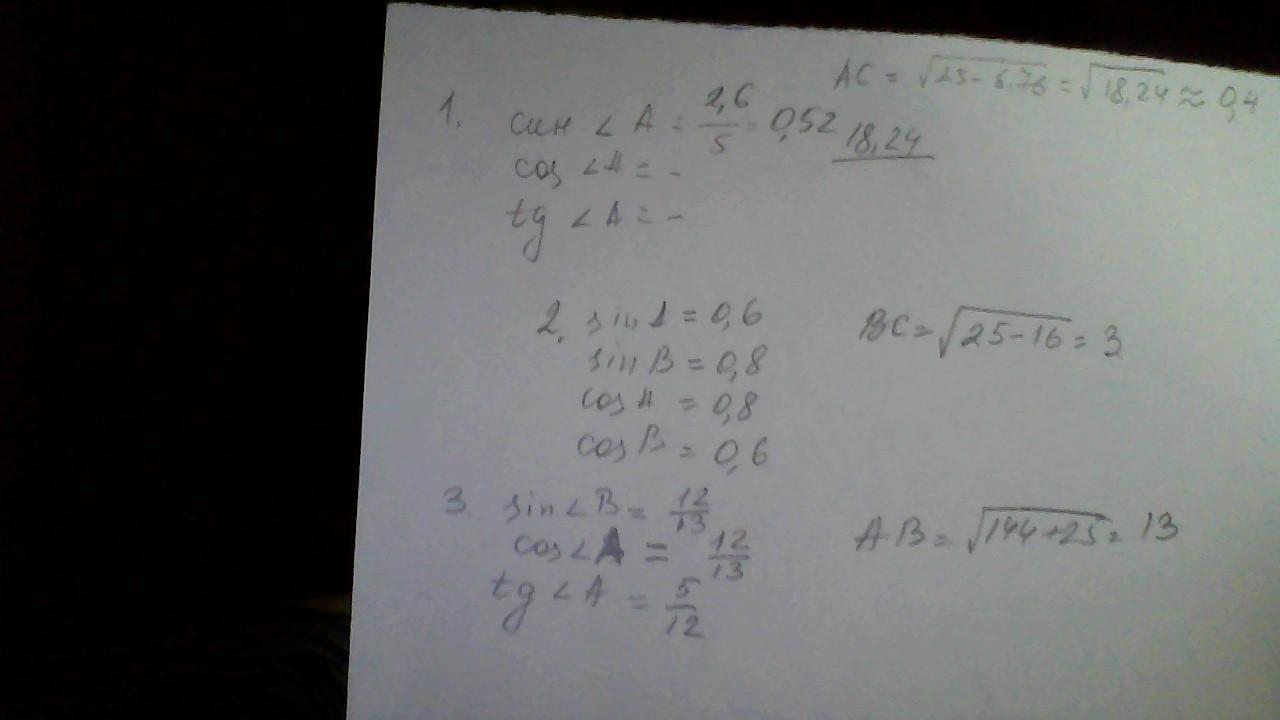 AC = √25-6,76 = √18,24 ≈ 0,4
1. син ∠A = 2,6/5 = 0,52 18,24
cos ∠A = -
tg ∠A = -
2. sin A = 0,6 BC = √25-16 = 3
sin B = 0,8
cos A = 0,8
cos B = 0,6
3. sin∠B = 12/13 AB = √144+25 = 13
cos∠A = 12/13
tg ∠A = 5/12